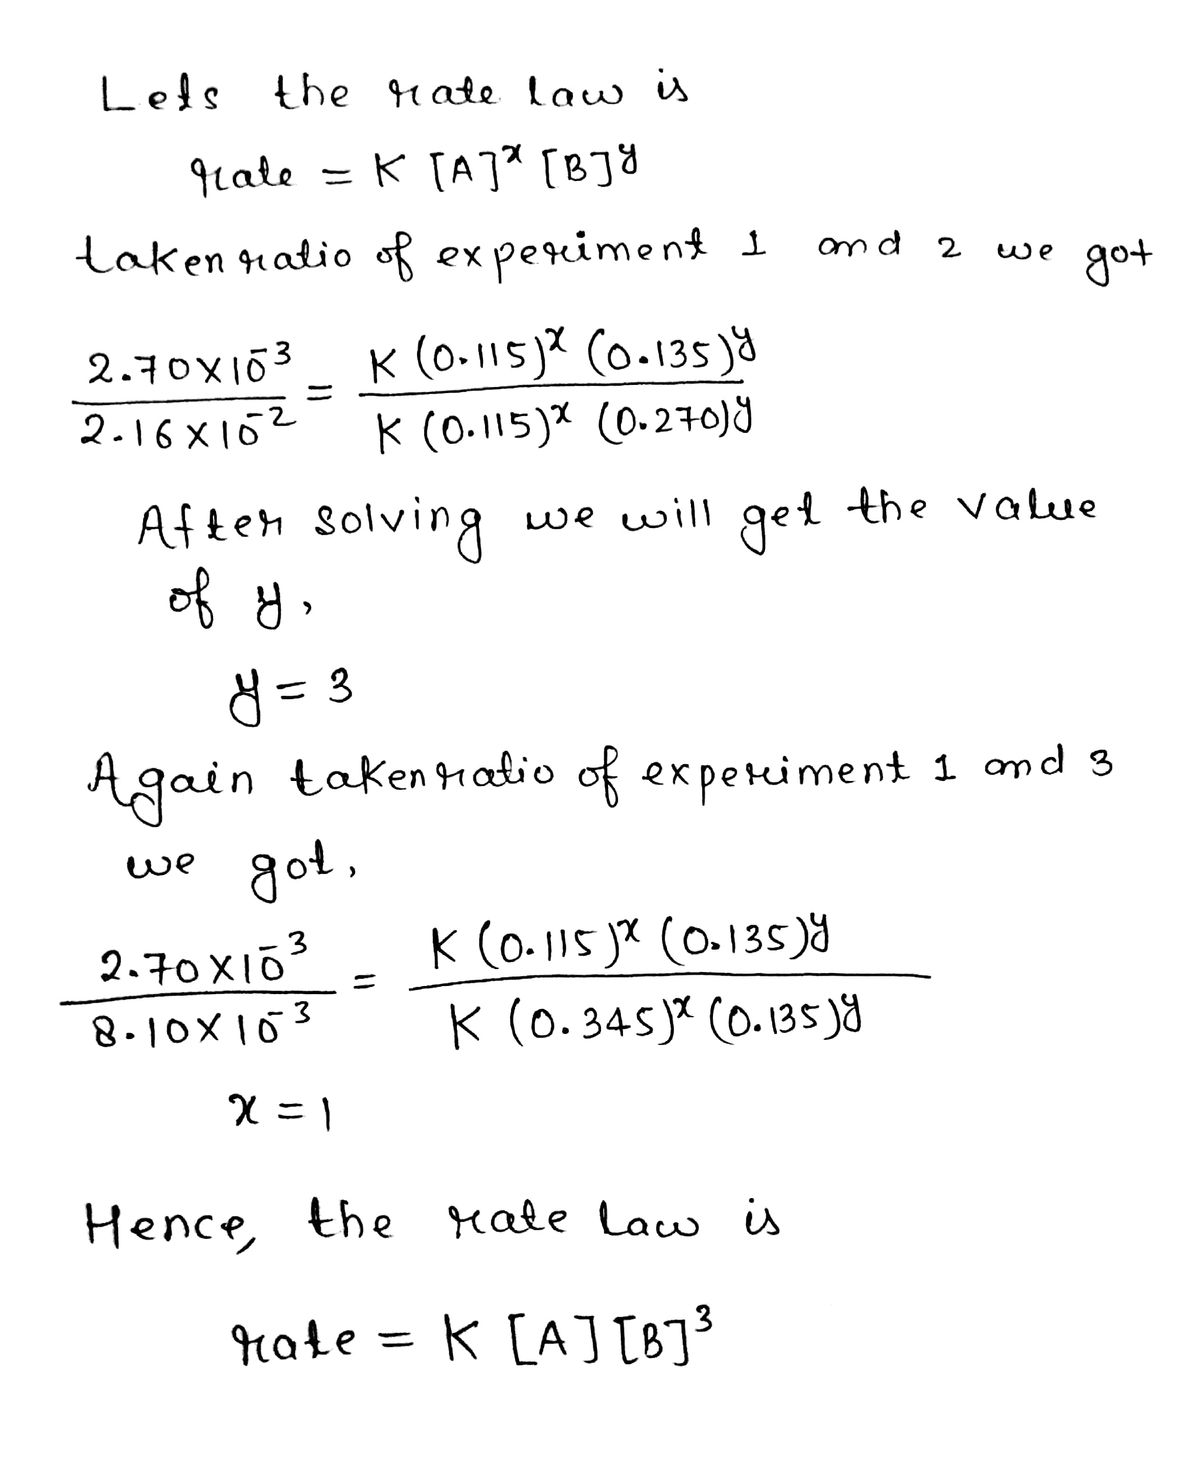 Lets the rate law is
rate = K [A]ˣ [B]ʸ
taken ratio of experiment 1 and 2 we got
2.70×10⁻³ / 2.16×10⁻² = K (0.115)ˣ (0.135)ʸ / K (0.115)ˣ (0.270)ʸ
After solving we will get the value
of y,
y = 3
Again taken ratio of experiment 1 and 3
we got,
2.70×10⁻³ / 8.10×10⁻³ = K (0.115)ˣ (0.135)ʸ / K (0.345)ˣ (0.135)ʸ
x = 1
Hence, the rate law is
rate = K [A] [B]³